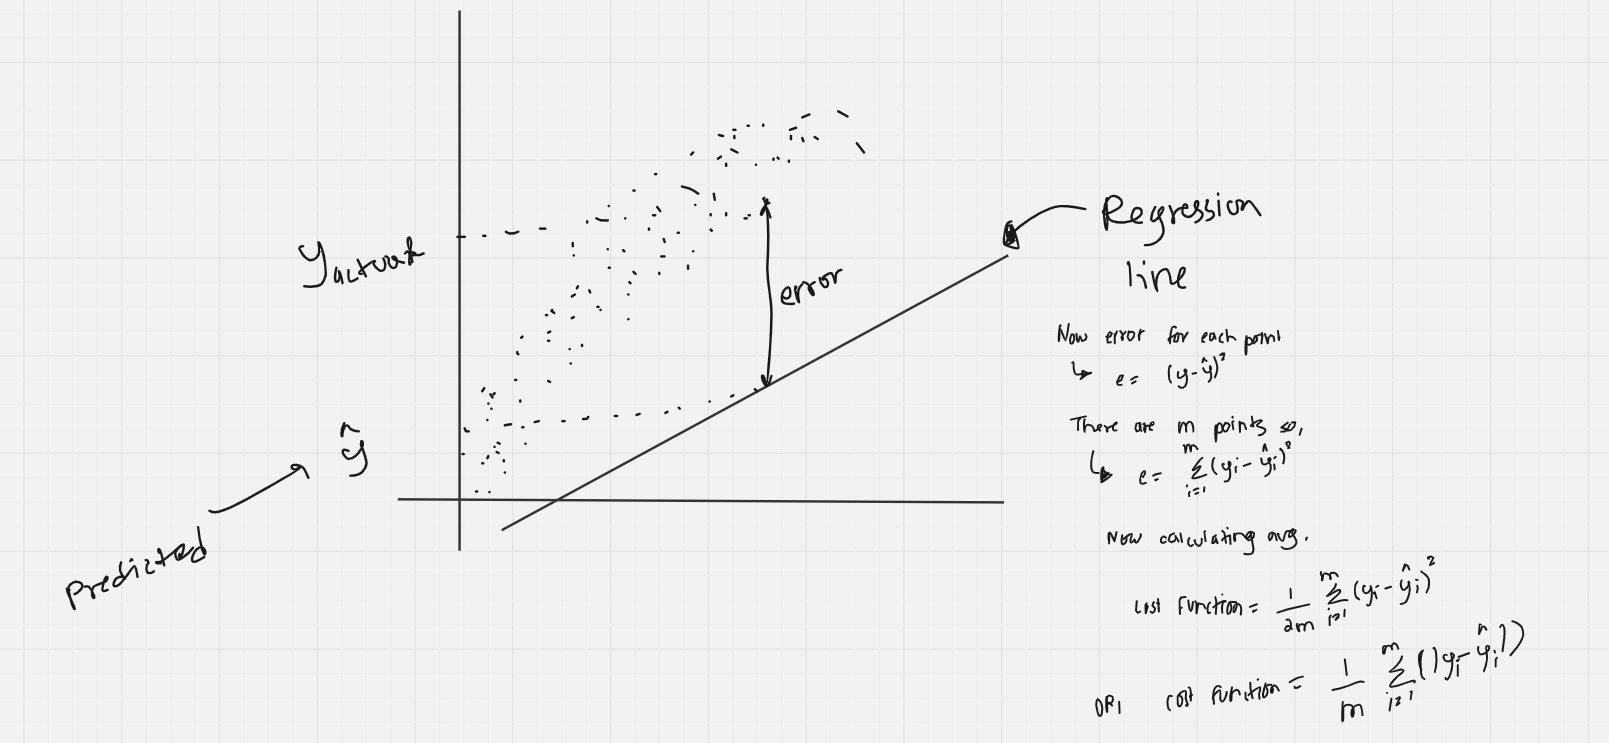 y actual
error
Regression
line
ŷ
predicted
Now error for each point
↳ e = (y-ŷ)²
There are m points so,
↳ e = m Σ i=1 (yi - ŷi)²
Now calculating avg.
cost function = 1/2m m Σ i=1 (yi - ŷi)²
OR, cost function = 1/m m Σ i=1 (|yi - ŷi|)